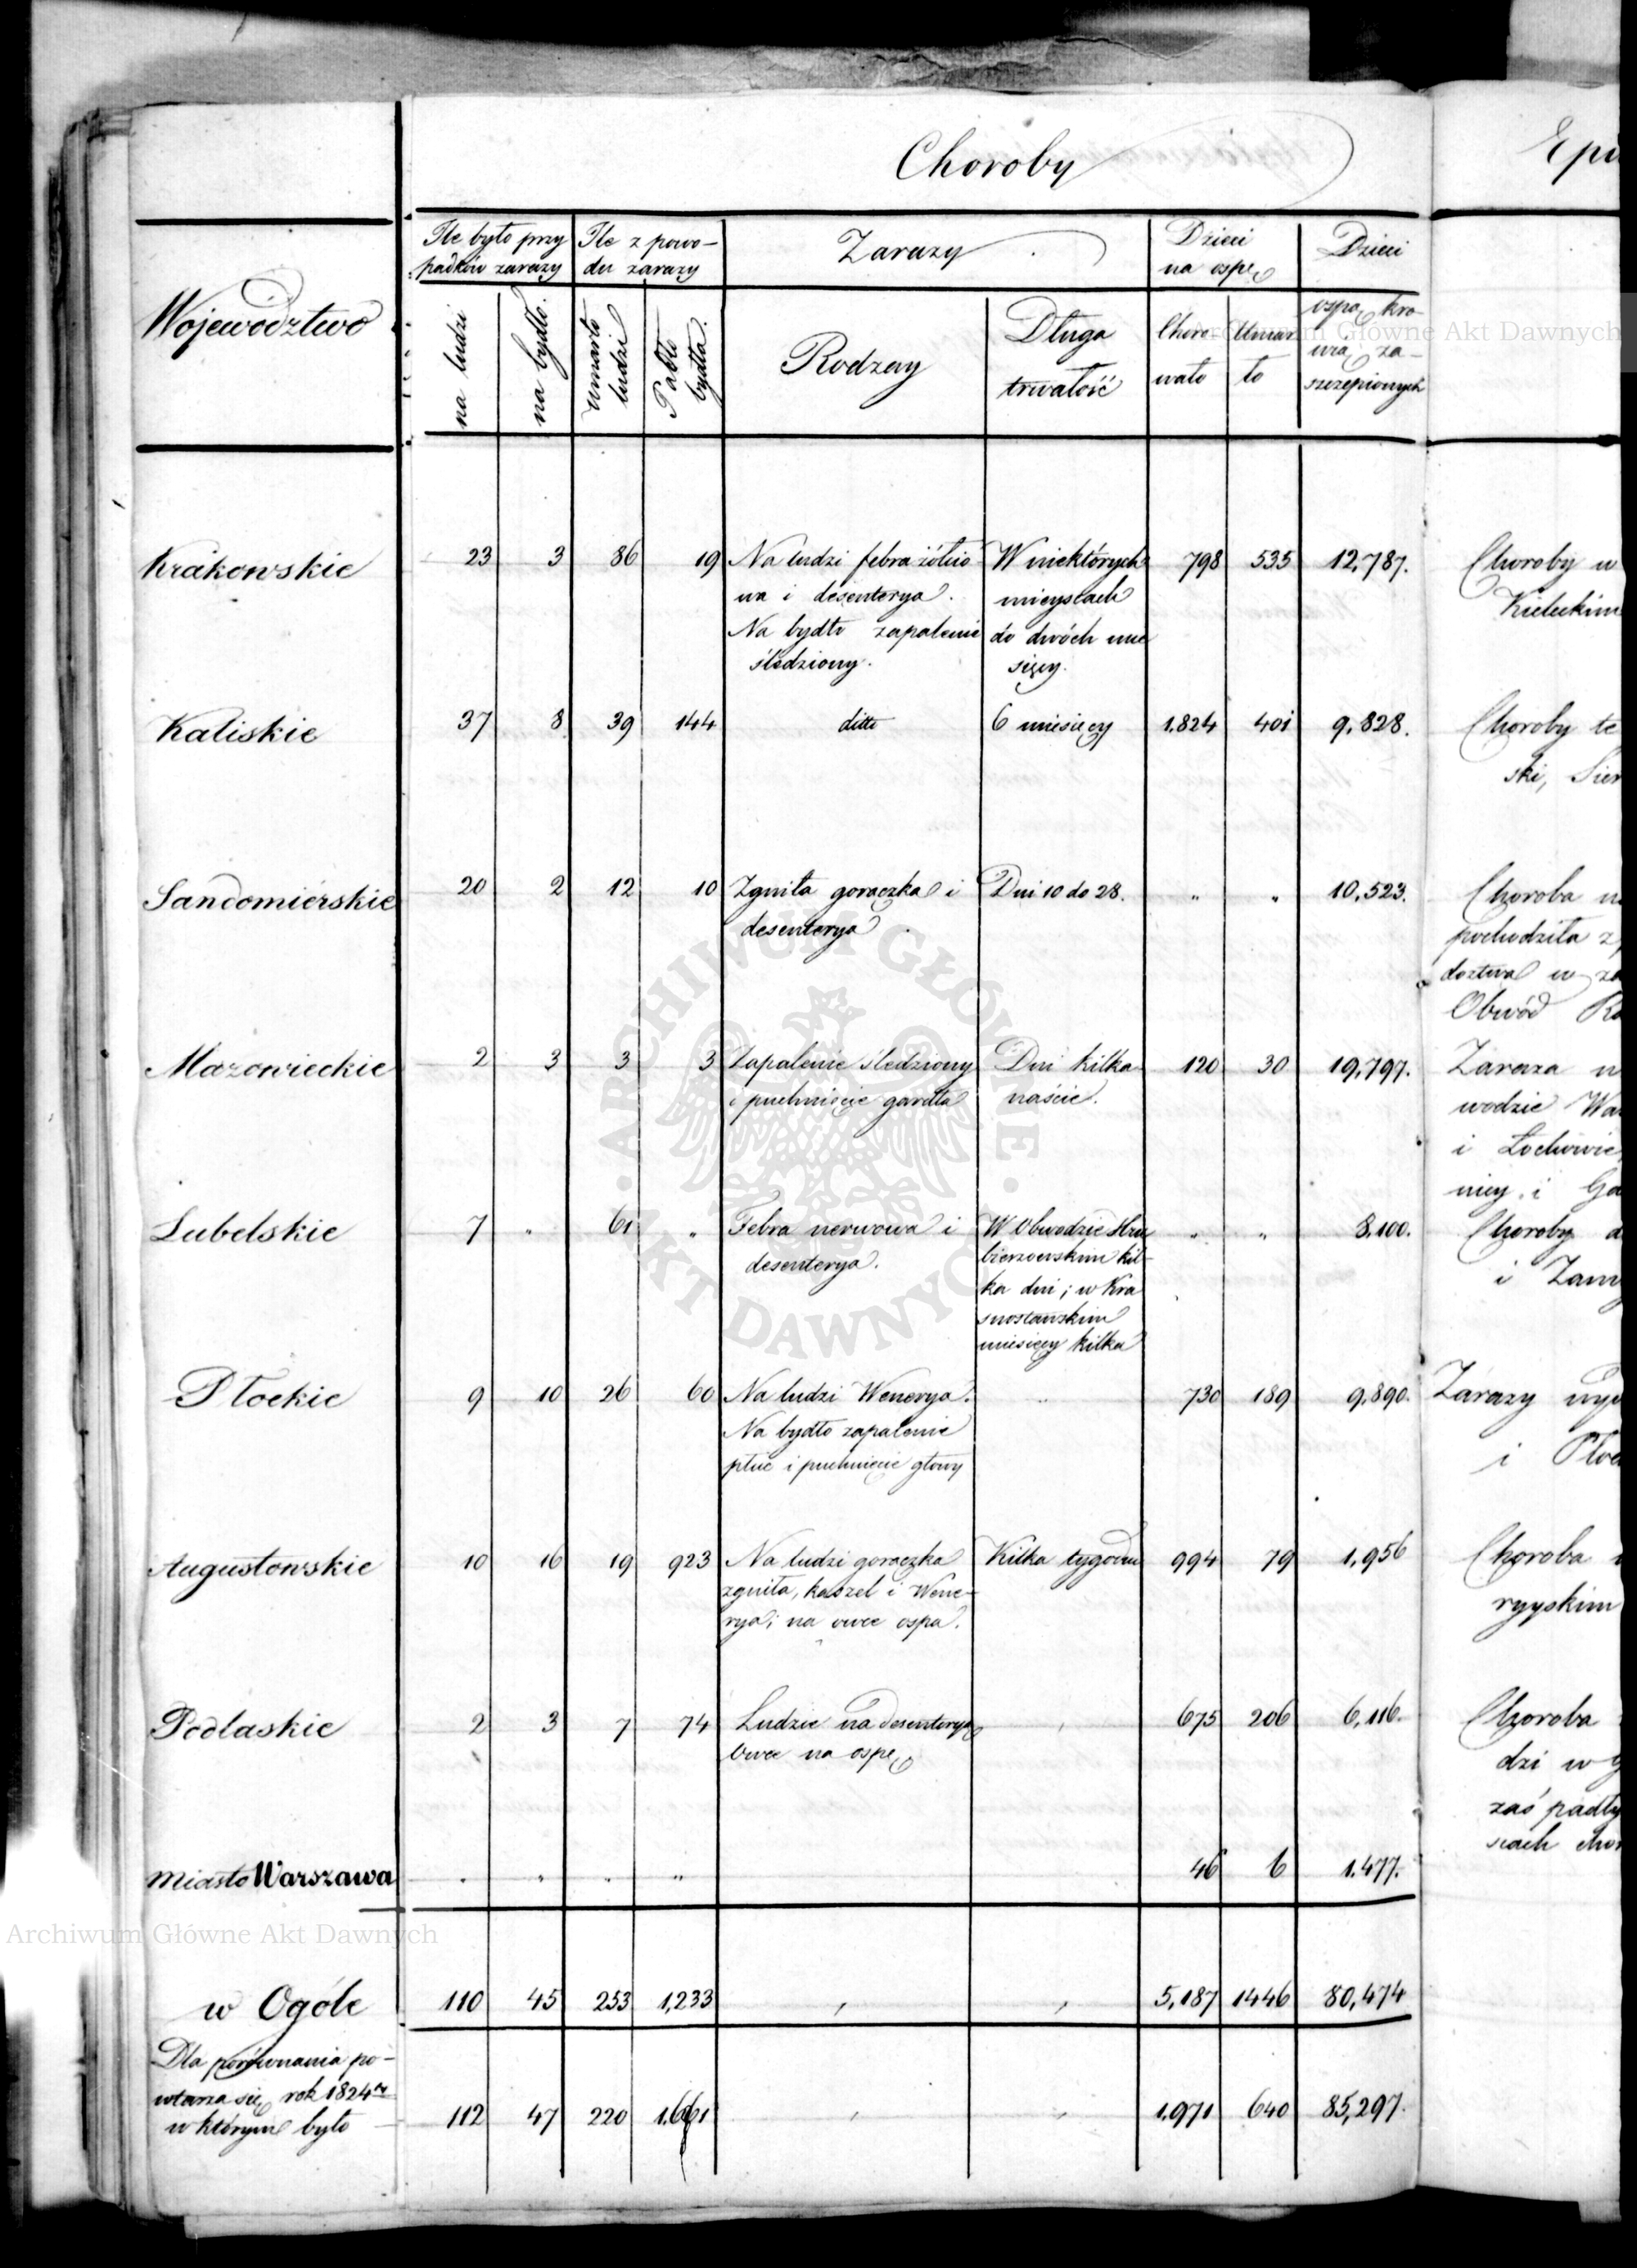 Choroby
Epi
Województwo
Ile było przy
padków zarazy
Ile z powo-
du zarazy
Zarazy
Dzieci
na ospę
Dzieci
na ludzi
na bydło.
umarło
ludzi
Padło
bydła.
Rodzay
Długa
trwałość
Choro
wało
Umar
ło
ospą kro-
wią za-
szczepionych
Krakowskie 23 3 86 19 Na ludzi febra żółcio W niektórych 798 535 12,787. Choroby w
wa i desenterya. mieyscach Kieleckim
Na bydło zapalenie do dwóch mie
śledziony. sięcy.
Kaliskie 37 8 39 144 ditto 6 miesięcy 1,824 401 9,828. Choroby te
ski, Sier
Sandomierskie 20 2 12 10 Zgniła gorączka i Dni 10 do 28. " " 10,523. Choroba n
desenterya pochodziła z
doztwa w za
Obwód Ra
Mazowieckie 2 3 3 3 Zapalenie śledziony Dni kilka 120 30 19,797. Zaraza n
i puchnięcie gardła naście. wodzie Wa
i Łochowie
nicy i Go
Lubelskie 7 " 61 " Febra nerwowa i W Obwodzie Hru " " 8,100. Choroby d
desenterya. bieszowskim kil- i Zam
ka dni; w Kra
snostawskim
miesięcy kilka
Płockie 9 10 26 60 Na ludzi Wenerya. " 730 189 9,890. Zarazy
Na bydło zapalenie i Płoc
płuc i puchnięcie głowy
Augustowskie 10 16 19 923 Na ludzi gorączka Kilka tygodni 994 79 1,956 Choroba
zgniła, kaszel i Wene- ryyskim
rya; na owce ospa.
Podlaskie 2 3 7 74 Ludzie na desenteryą 675 206 6,116. Choroba
Owce na ospę dzi w
zaś padły
scach cho
Miasto Warszawa " " " " 46 6 1,477.
w Ogóle 110 45 253 1,233 5,187 1446 80,474
Dla porównania po-
wtarza się rok 1824ty
w którym było 112 47 220 1,661 1,971 640 85,297.
Archiwum Główne Akt Dawnych
Archiwum Główne Akt Dawnych
ARCHIWUM GŁÓWNE AKT DAWNYCH